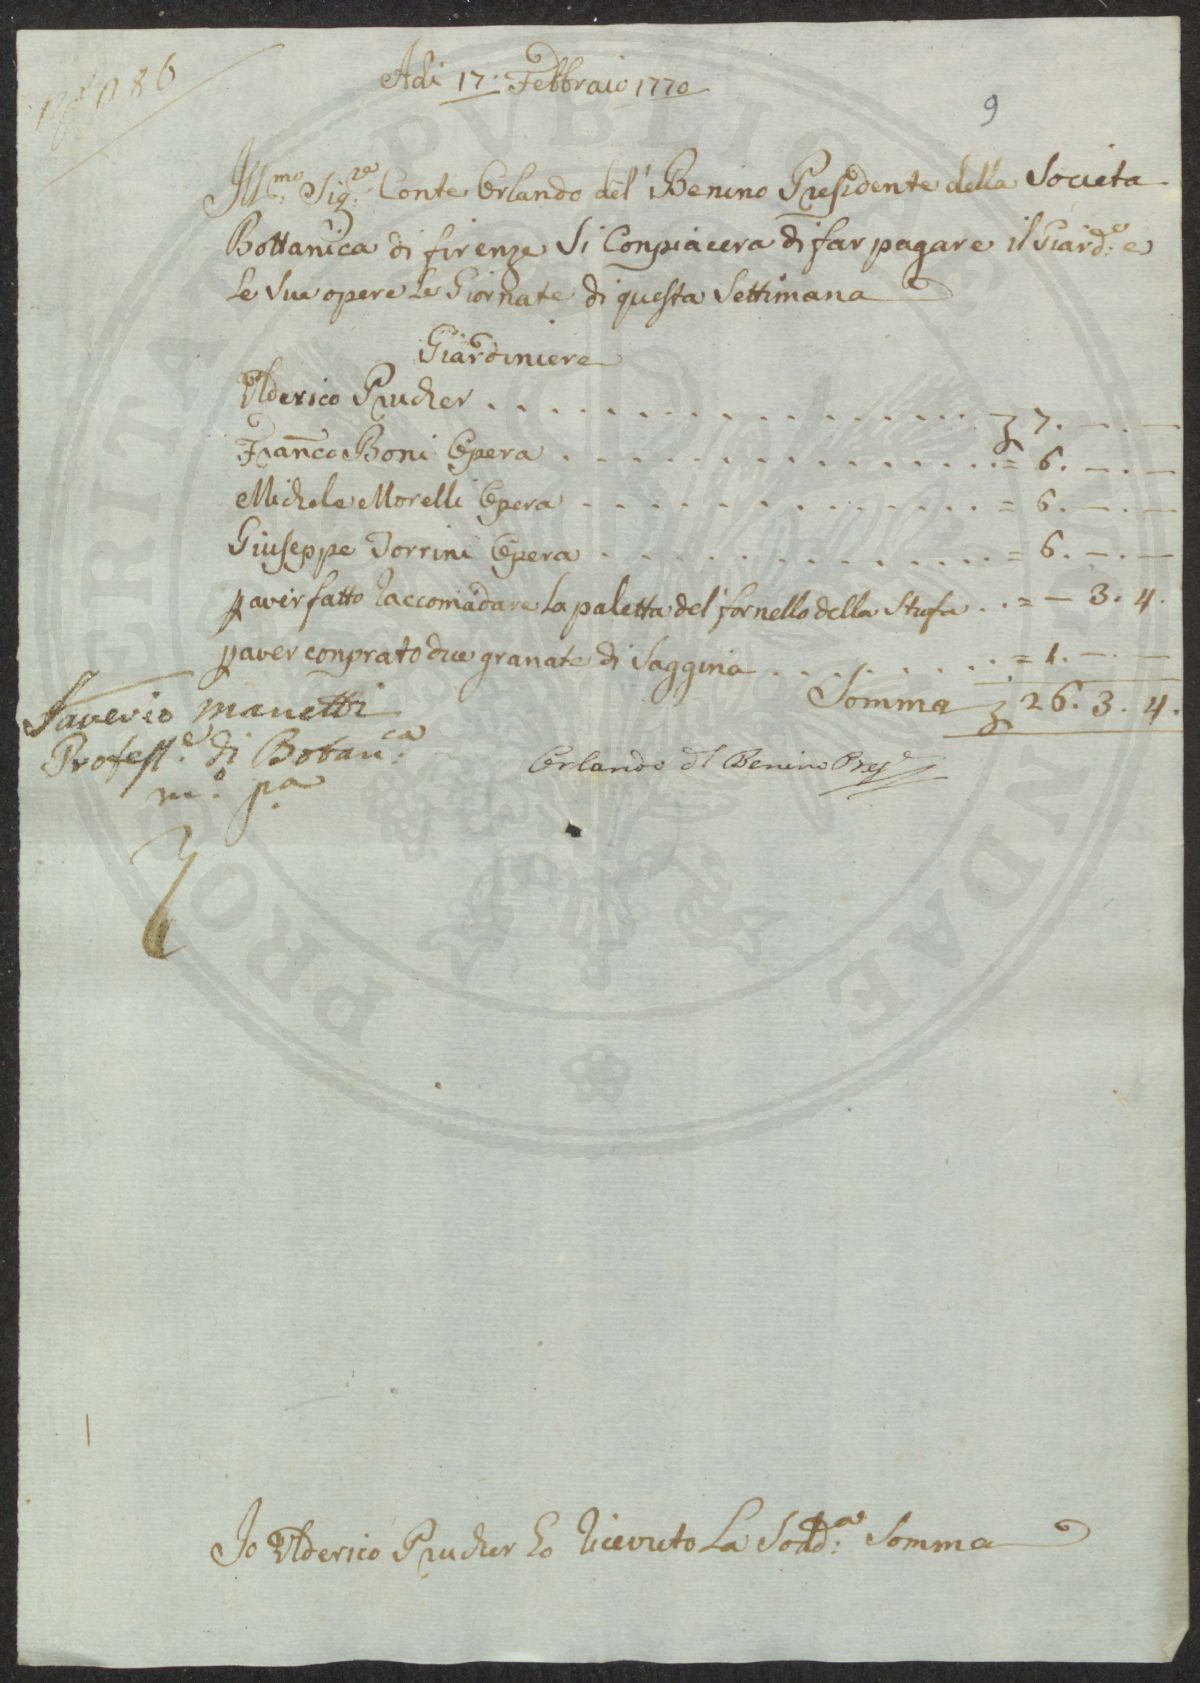 Adi 17. Febbraio 1770
9
Ill.mo Sig.re Conte Orlando del' Benino Presidente della Societa
Bottanica di firenze Si Conpiacera di far pagare il Giard.e e
Le Sue opere Le Giornate di questa Settimana
Giardiniere
Ulderico Prucher . . . . . . . . . . . . . . . . . . . . £ 7. —. —
Franco Boni Opera . . . . . . . . . . . . . . . . . . = 6. —. —
Michele Morelli Opera . . . . . . . . . . . . . . . . = 6. —. —
Giuseppe Torrini Opera . . . . . . . . . . . . . . . = 6. —. —
p aver fatto raccomadare La paletta del' fornello della Stufa . . = — 3. 4.
p aver conprato due granate di Saggina . . . . . . . . . = 1. —. —
Somma £ 26. 3. 4.
Saverio Manetti
Profess.e di Botan.ca
m.o p.a
Orlando d'l Benino Pres.e
Io Ulderico Prucher Ho ricevuto La Sodd.a Somma
PROSPERITATI PVBLICAE AVGENDAE